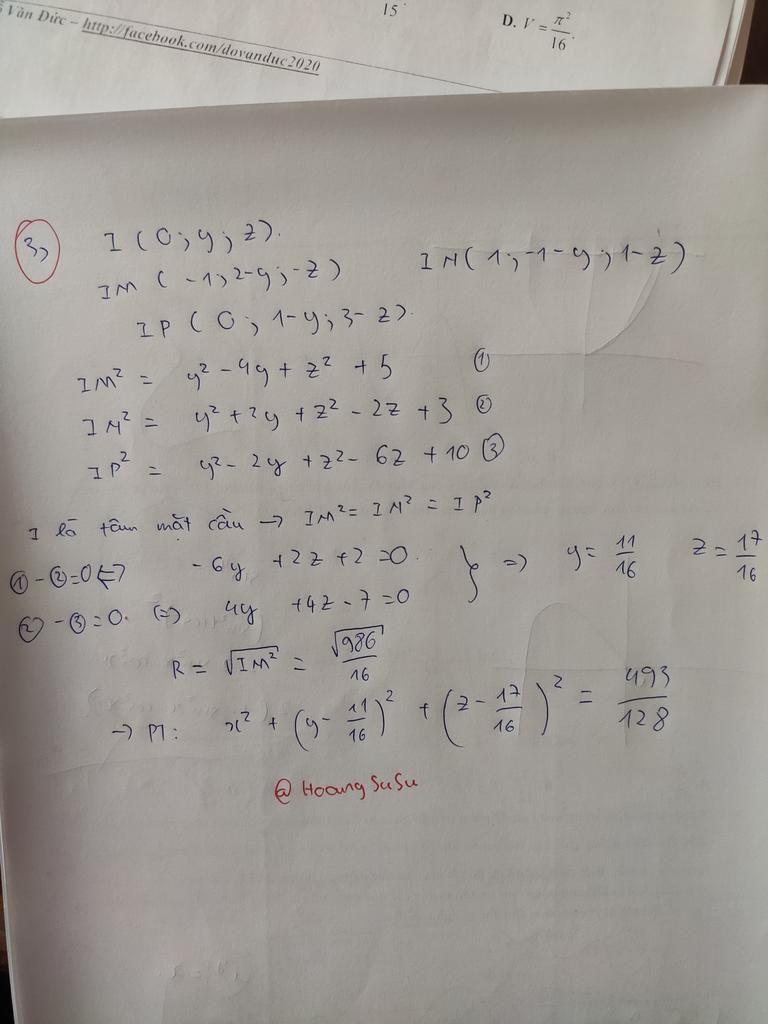 Văn Đức – http://facebook.com/dovanduc2020
15
D. V = π²/16.
3,
I (0; y; z).
IM ( -1; 2-y; -z) IN( 1; -1-y; 1-z)
IP ( 0; 1-y; 3-z).
IM² = y² - 4y + z² + 5 ①
IN² = y² + 2y + z² - 2z + 3 ②
IP² = y² - 2y + z² - 6z + 10 ③
I là tâm mặt cầu → IM² = IN² = IP²
① - ② = 0 ⇔ - 6y + 2z + 2 = 0. } ⇒ y = 11/16 z = 17/16
② - ③ = 0. ⇔ 4y + 4z - 7 = 0
R = √IM² = √986/16
→ PT: x² + (y - 11/16)² + (z - 17/16)² = 493/128
@ HoangSuSu